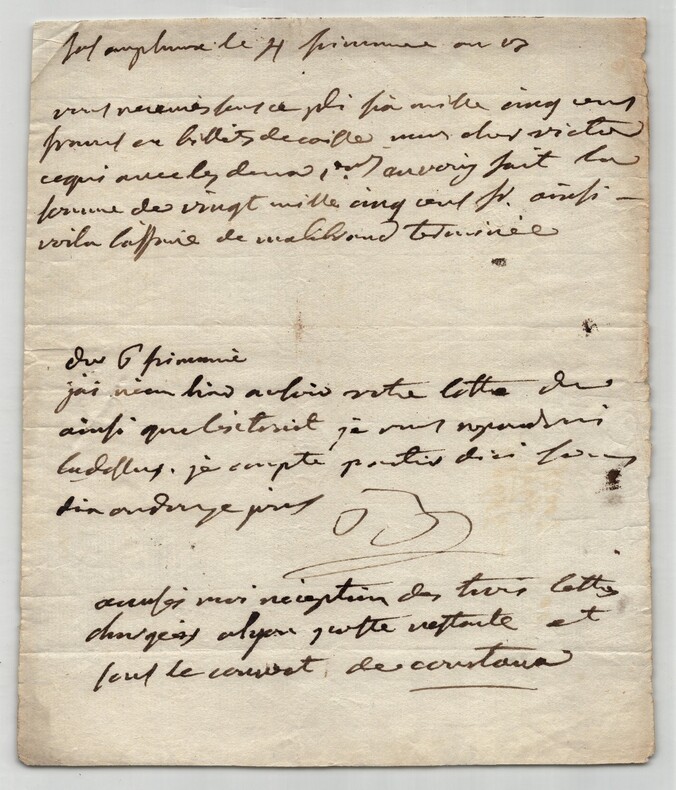 le 4 frimaire an 13
vous recevrés sous ce pli six mille cinq cens
francs en billets de caisse mon cher victor
ce qui avec les deux envois fait la
somme de vingt mille cinq cens fr. ainsi
voila l'affaire de malibrand terminée
du 6 frimaire
j'ai recu hier au soir votre lettre du
ainsi que l'extrait, je vous repondrai
la dessus. je compte partir d'ici sous
dix ou douze jours
accusés moi réception des trois lettres
chargées a lyon poste restante et
sous le couvert de constans